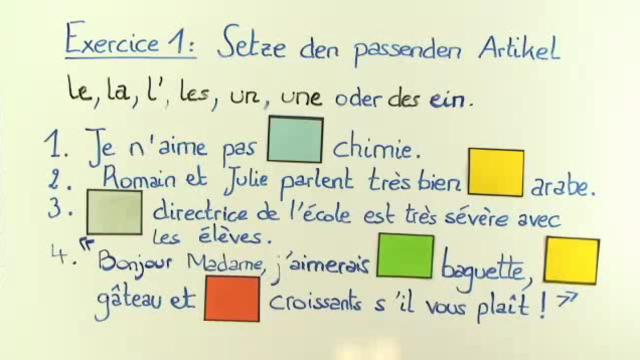 Exercice 1: Setze den passenden Artikel
le, la, l', les, un, une oder des ein.
1. Je n'aime pas chimie.
2. Romain et Julie parlent très bien arabe.
3. directrice de l'école est très sévère avec
les élèves.
4. "Bonjour Madame, j'aimerais baguette,
gâteau et croissants s'il vous plaît ! »